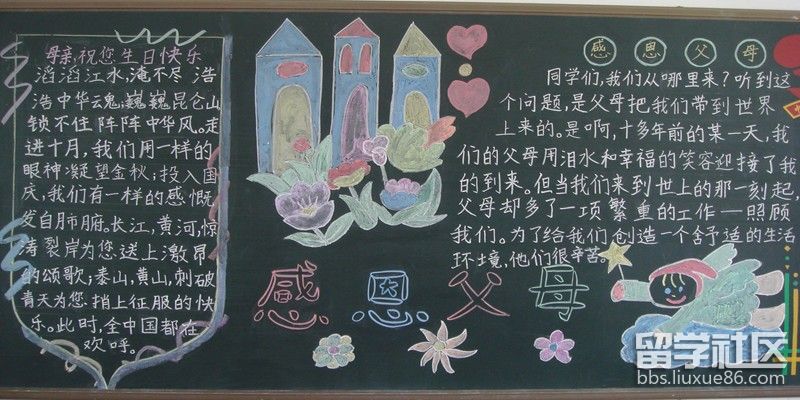 母亲,祝您生日快乐
滔滔江水,淹不尽 浩
浩中华云鬼;巍巍昆仑山
锁不住 阵阵中华风。走
进十月,我们用一样的
眼神凝望金秋;投入国
庆,我们有一样的感慨
发自肺腑。长江,黄河,惊
涛裂岸为您送上激昂
的颂歌;泰山,黄山,刺破
青天为您捎上征服的快
乐。此时,全中国都在
欢呼。
感恩父母
同学们,我们从哪里来?听到这
个问题,是父母把我们带到世界
上来的。是啊,十多年前的某一天,我
们的父母用泪水和幸福的笑容迎接了我
的到来。但当我们来到世上的那一刻起,
父母却多了一项繁重的工作—照顾
我们。为了给我们创造一个舒适的生活
环境,他们很辛苦。
感恩父母
留学社区
bbs.liuxue86.com